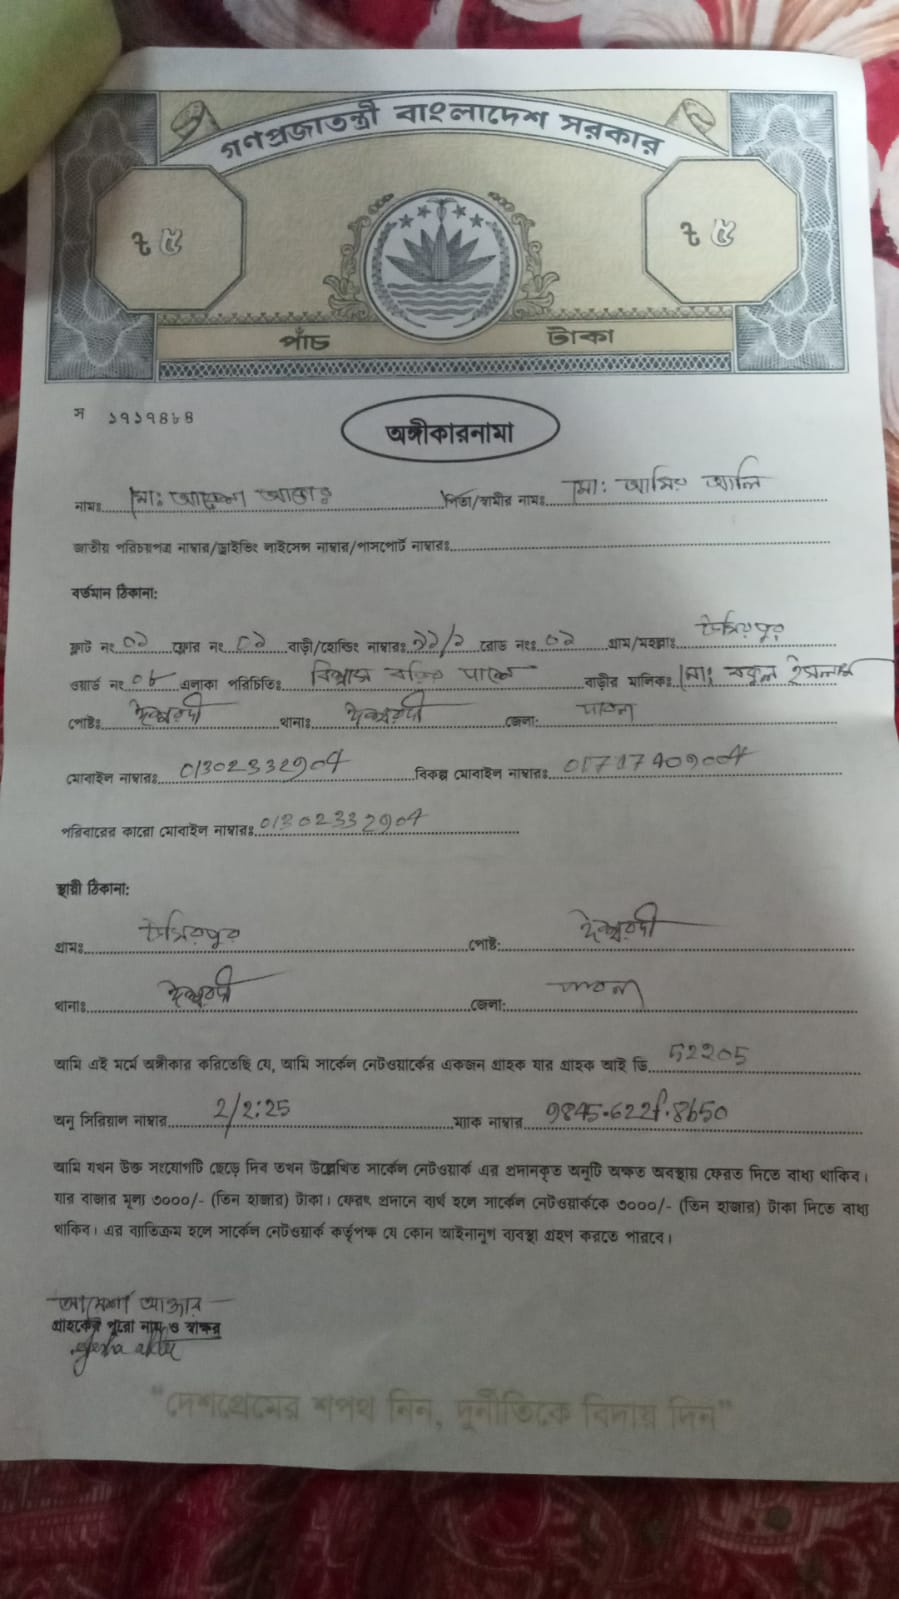 গণপ্রজাতন্ত্রী বাংলাদেশ সরকার
৳ ৫ ৳ ৫
পাঁচ টাকা
স ১৭১৭৪৮৪
অঙ্গীকারনামা
নামঃ মোঃ আয়েশা আক্তার পিতা/স্বামীর নামঃ মোঃ আমির আলি
জাতীয় পরিচয়পত্র নাম্বার/ড্রাইভিং লাইসেন্স নাম্বার/পাসপোর্ট নাম্বারঃ
বর্তমান ঠিকানা:
ফ্লাট নং ০১ ফ্লোর নং ০১ বাড়ী/হোল্ডিং নাম্বারঃ ১১/১ রোড নংঃ ০১ গ্রাম/মহল্লাঃ
ওয়ার্ড নং ০৮ এলাকা পরিচিতিঃ বিশ্বাস বাড়ির পাশে বাড়ীর মালিকঃ মোঃ বকুল ইসলাম
পোষ্টঃ ঈশ্বরদী থানাঃ ঈশ্বরদী জেলা: পাবনা
মোবাইল নাম্বারঃ বিকল্প মোবাইল নাম্বারঃ
পরিবারের কারো মোবাইল নাম্বারঃ
স্থায়ী ঠিকানা:
গ্রামঃ পোষ্ট: ঈশ্বরদী
থানাঃ ঈশ্বরদী জেলা: পাবনা
আমি এই মর্মে অঙ্গীকার করিতেছি যে, আমি সার্কেল নেটওয়ার্কের একজন গ্রাহক যার গ্রাহক আই ডি 52205
অনু সিরিয়াল নাম্বার 2/2:25 ম্যাক নাম্বার 9845.622f.8650
আমি যখন উক্ত সংযোগটি ছেড়ে দিব তখন উল্লেখিত সার্কেল নেটওয়ার্ক এর প্রদানকৃত অনুটি অক্ষত অবস্থায় ফেরত দিতে বাধ্য থাকিব।
যার বাজার মূল্য ৩০০০/- (তিন হাজার) টাকা। ফেরৎ প্রদানে ব্যর্থ হলে সার্কেল নেটওয়ার্ককে ৩০০০/- (তিন হাজার) টাকা দিতে বাধ্য
থাকিব। এর ব্যতিক্রম হলে সার্কেল নেটওয়ার্ক কর্তৃপক্ষ যে কোন আইনানুগ ব্যবস্থা গ্রহণ করতে পারবে।
আয়েশা আক্তার
গ্রাহকের পুরো নাম ও স্বাক্ষর
"দেশপ্রেমের শপথ নিন, দুর্নীতিকে বিদায় দিন"